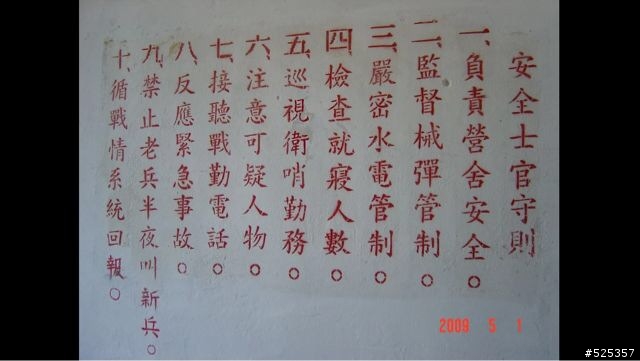 安全士官守則
一、負責營舍安全。
二、監督械彈管制。
三、嚴密水電管制。
四、檢查就寢人數。
五、巡視衛哨勤務。
六、注意可疑人物。
七、接聽戰勤電話。
八、反應緊急事故。
九、禁止老兵半夜叫新兵。
十、循戰情系統回報。
2009 5 1
#525357